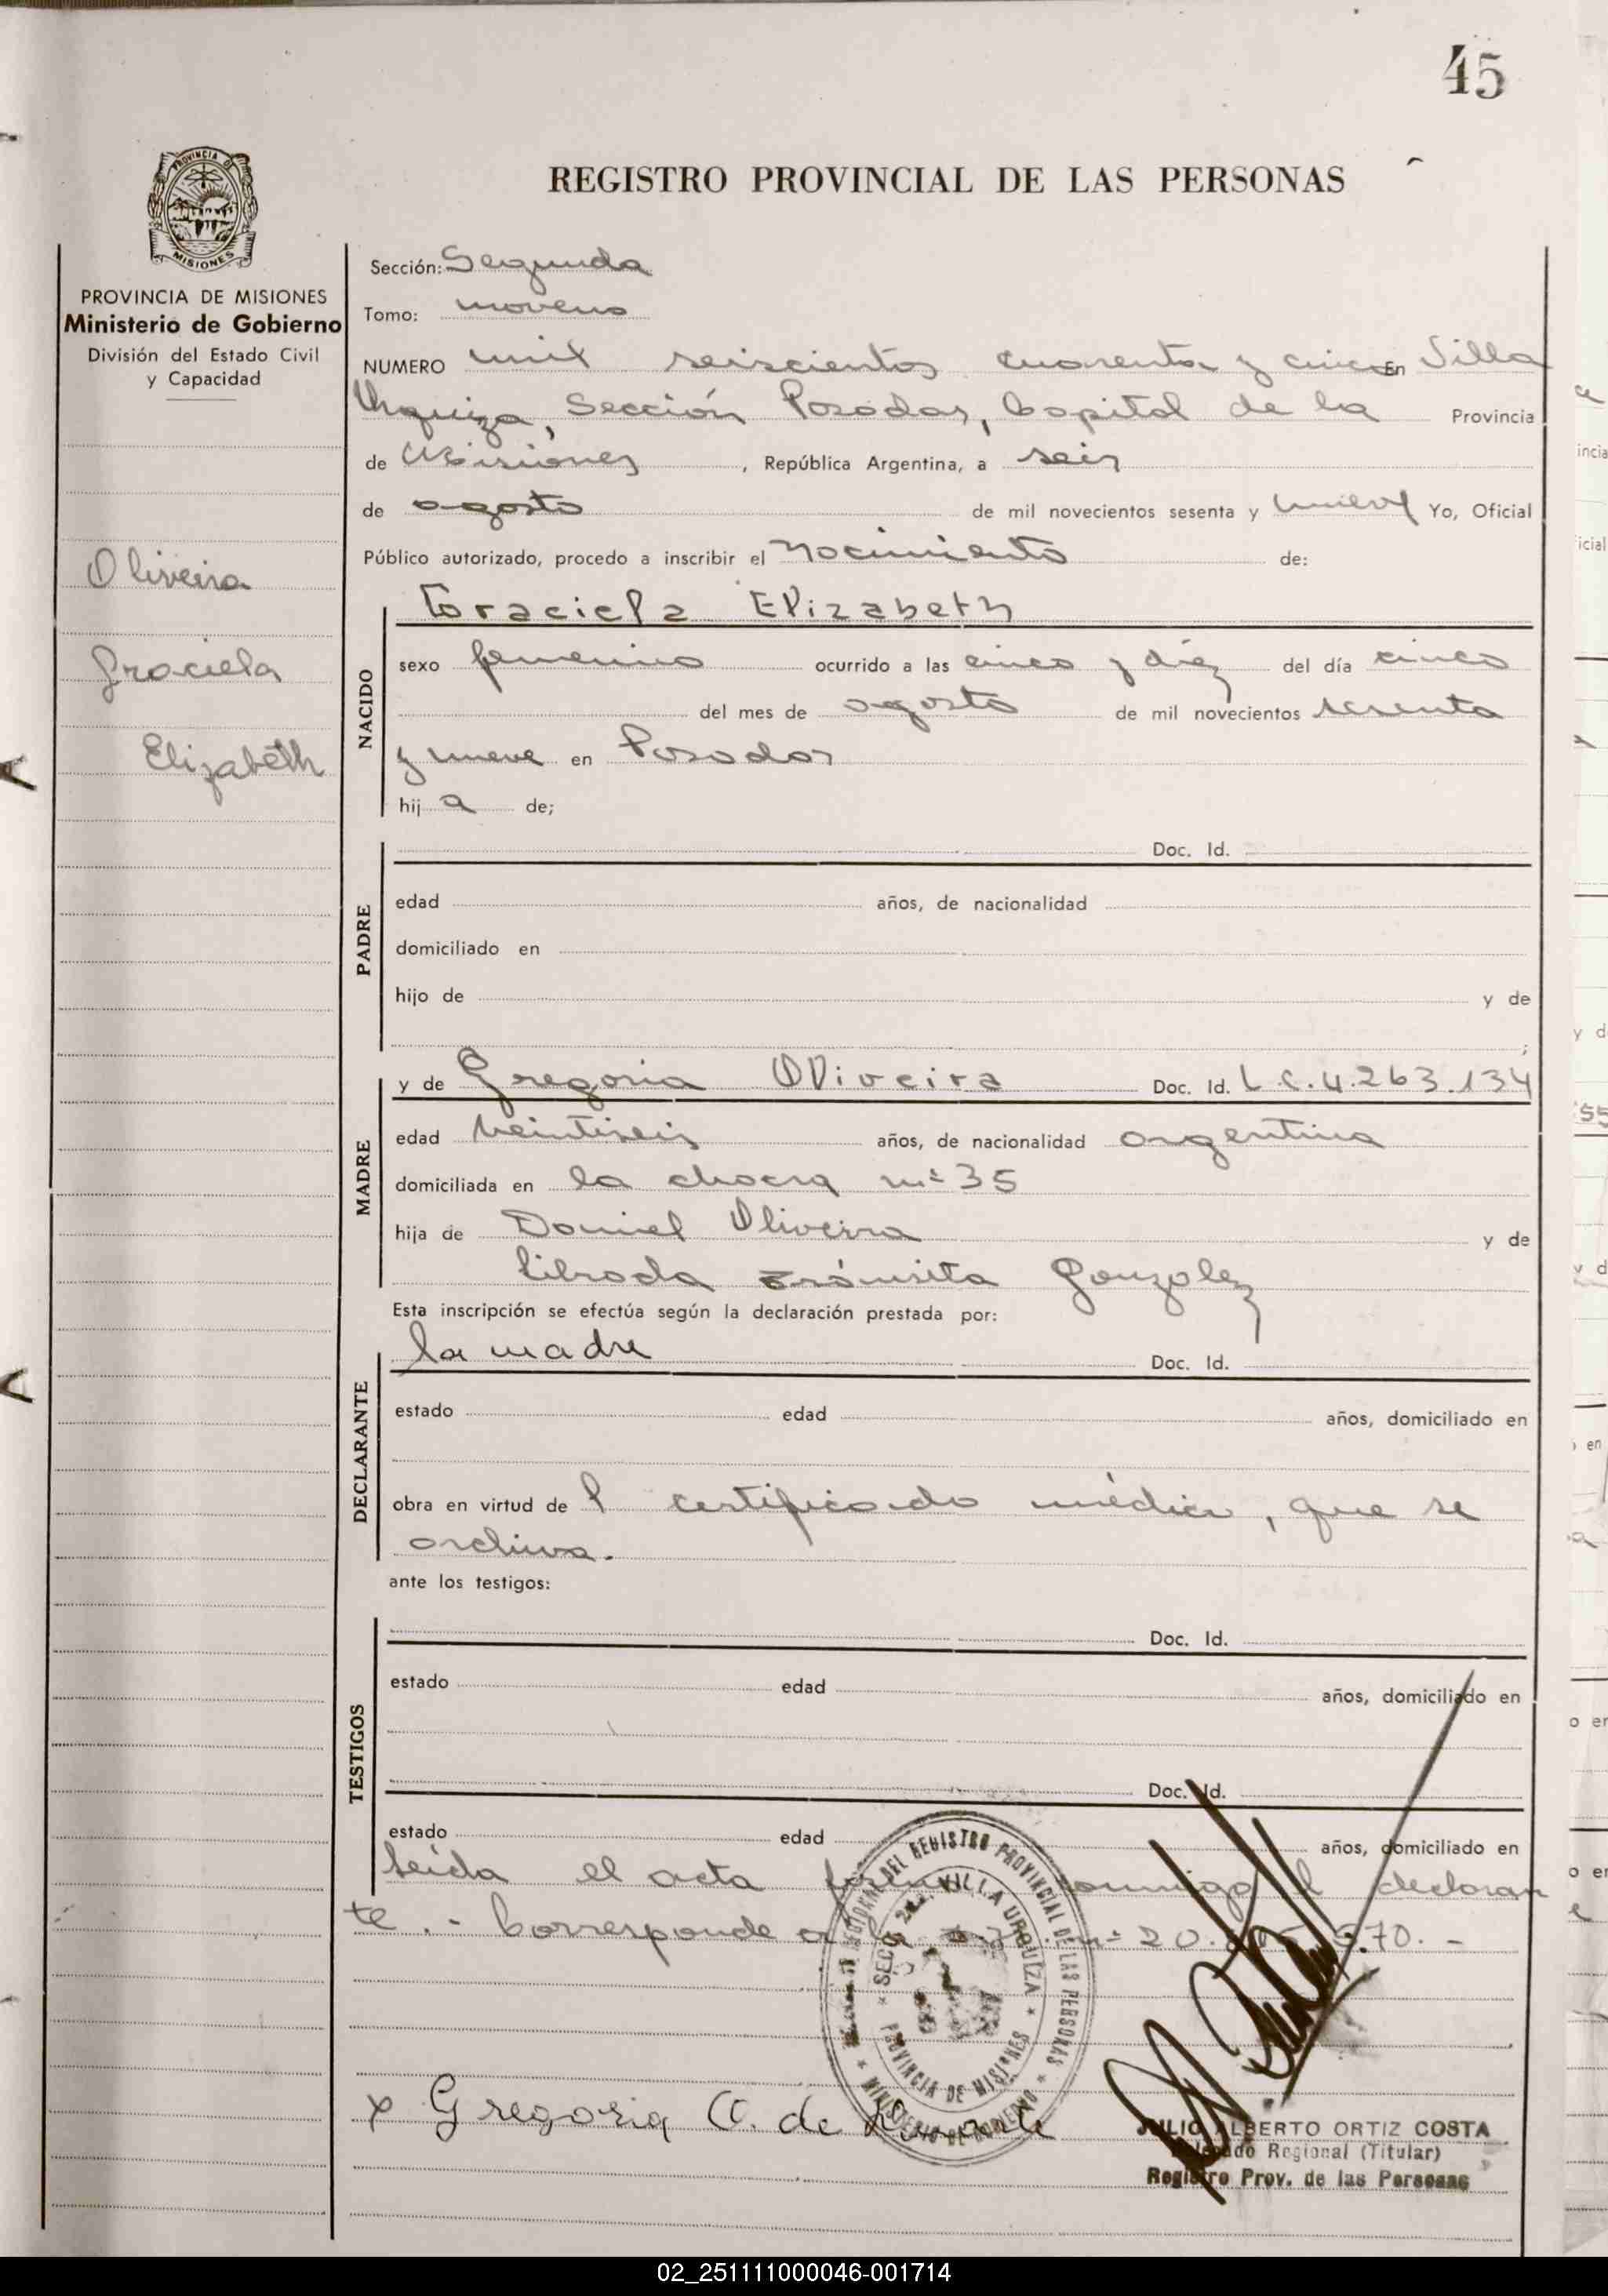 45
REGISTRO PROVINCIAL DE LAS PERSONAS
PROVINCIA DE MISIONES
Ministerio de Gobierno
División del Estado Civil
y Capacidad
Oliveira
Graciela
Elizabeth
Sección: Segunda
Tomo: noveno
NUMERO mil seiscientos cuarenta y cinco En Villa
Urquiza, Sección Posadas, Capital de la Provincia
de Misiones, República Argentina, a seis
de agosto de mil novecientos sesenta y nueve Yo, Oficial
Público autorizado, procedo a inscribir el nacimiento de:
NACIDO
Graciela Elizabeth
sexo femenino ocurrido a las cinco y diez del día cinco
del mes de agosto de mil novecientos sesenta
y nueve en Posadas
hij a de;
PADRE
Doc. Id.
edad años, de nacionalidad
domiciliado en
hijo de y de
;
MADRE
y de Gregoria Oliveira Doc. Id. L.C. 4.263.134
edad veintiseis años, de nacionalidad argentina
domiciliada en la chacra nº 35
hija de Daniel Oliveira y de
Librada Tránsita Gonzalez
Esta inscripción se efectúa según la declaración prestada por:
DECLARANTE
la madre Doc. Id.
estado edad años, domiciliado en
obra en virtud de l certificado médico, que se
archiva.
ante los testigos:
TESTIGOS
Doc. Id.
estado edad años, domiciliado en
Doc. Id.
estado edad años, domiciliado en
Leída el acta firma conmigo l declaran
te.- Corresponde a nº 20. 570.-
REGIONAL DEL REGISTRO PROVINCIAL DE LAS PERSONAS * MINISTERIO DE GOBIERNO *
SECC. 2a. VILLA URQUIZA * PROVINCIA DE MISIONES *
x Gregoria O. de
JULIO ALBERTO ORTIZ COSTA
Delegado Regional (Titular)
Registro Prov. de las Personas
02_251111000046-001714